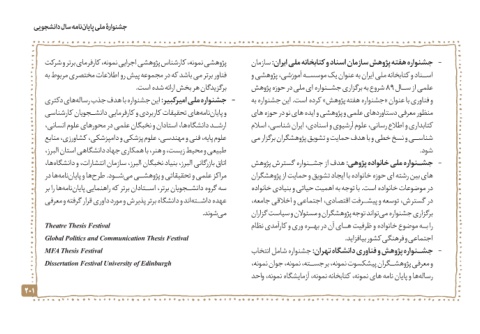 جشنوارهٔ ملی پایان‌نامه سال دانشجویی
- جشنواره هفته پژوهش سازمان اسناد و کتابخانه ملی ایران: سازمان
اسناد و کتابخانه ملی ایران به عنوان یک موسسه آموزشی، پژوهشی و
علمی از سال ۸۹ شروع به برگزاری جشنواره ای ملی در حوزه پژوهش
و فناوری با عنوان «جشنواره هفته پژوهش» کرده است. این جشنواره به
منظور معرفی دستاوردهای علمی و پژوهشی و ایده های نو در حوزه های
کتابداری و اطلاع رسانی، علوم آرشیوی و اسنادی، ایران شناسی، اسلام
شناسی و نسخ خطی و با هدف حمایت و تشویق پژوهشگران برگزار می
شود.
- جشنواره ملی خانواده پژوهی: هدف از جشنواره گسترش پژوهش
های بین رشته ای حوزه خانواده با ایجاد تشویق و حمایت از پژوهشگران
در موضوعات خانواده است. با توجه به اهمیت حیاتی و بنیادی خانواده
در گسترش، توسعه و پیشرفت اقتصادی، اجتماعی و اخلاقی جامعه،
برگزاری جشنواره می‌تواند توجه پژوهشگران و مسئولان و سیاست گزاران
را به موضوع خانواده و ظرفیت های آن در بهره وری و کارآمدی نظام
اجتماعی و فرهنگی کشور بیافزاید.
- جشنواره پژوهش و فناوری دانشگاه تهران: جشنواره شامل انتخاب
و معرفی پژوهشگران پیشکسوت نمونه، برجسته، نمونه، جوان نمونه،
رساله‌ها و پایان نامه های نمونه، کتابخانه نمونه، آزمایشگاه نمونه، واحد
پژوهشی نمونه، کارشناس پژوهشی اجرایی نمونه، کارفرمای برتر و شرکت
فناور برتر می باشد که در مجموعه پیش رو اطلاعات مختصری مربوط به
برگزیدگان هر بخش ارائه شده است.
- جشنواره ملی امیرکبیر: این جشنواره با هدف جذب رساله‌های دکتری
و پایان‌نامه‌های تحقیقات کاربردی و کارفرمایی دانشجویان کارشناسی
ارشد دانشگاه‌ها، استادان و نخبگان علمی در محورهای علوم انسانی،
علوم پایه، فنی و مهندسی، علوم پزشکی و دامپزشکی، کشاورزی، منابع
طبیعی و محیط زیست، و هنر، با همکاری جهاد دانشگاهی استان البرز،
اتاق بازرگانی البرز، بنیاد نخبگان البرز، سازمان انتشارات، و دانشگاه‌ها،
مراکز علمی و تحقیقاتی و پژوهشی می‌شود. طرح‌ها و پایان‌نامه‌ها در
سه گروه دانشجویان برتر، استادان برتر که راهنمایی پایان‌نامه‌ها را بر
عهده داشته‌اند و دانشگاه برتر پذیرش و مورد داوری قرار گرفته و معرفی
می‌شوند.
Theatre Thesis Festival
Global Politics and Communication Thesis Festival
MFA Thesis Festival
Dissertation Festival University of Edinburgh
۲۰۱